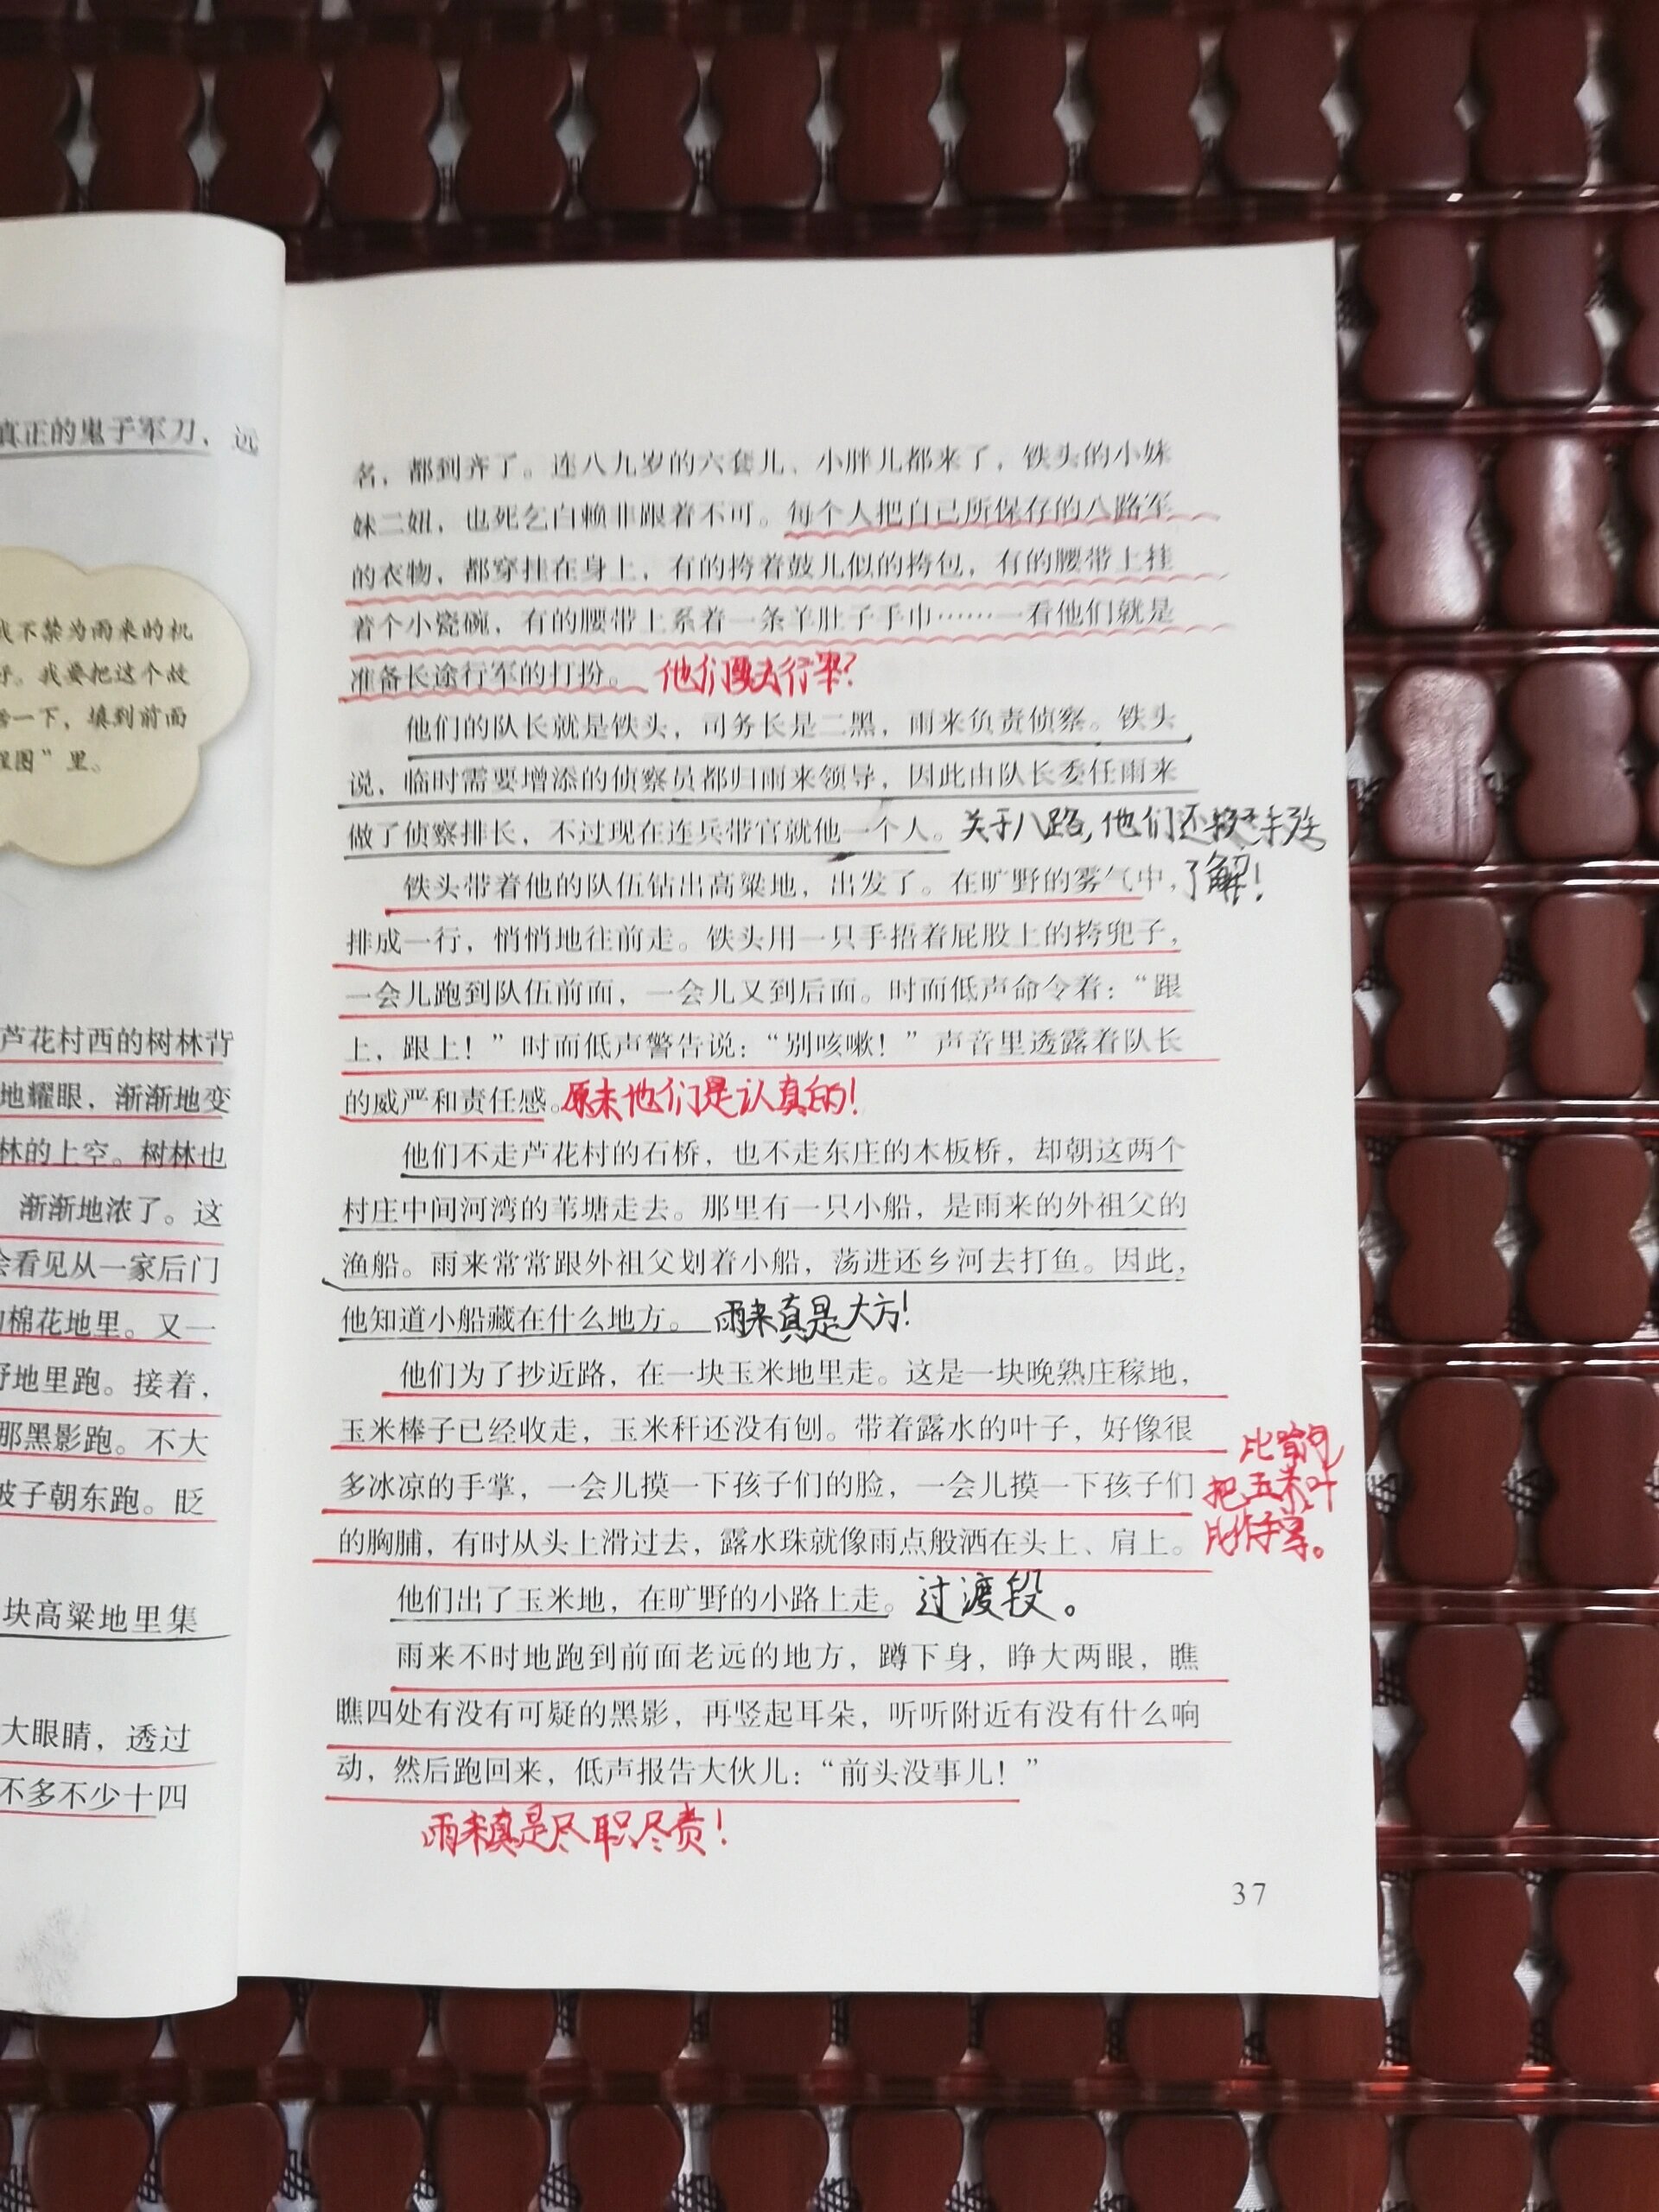 真正的鬼子军刀，远
我不禁为雨来的机
好。我要把这个故
一下，填到前面
程图”里。
芦花村西的树林背
地耀眼，渐渐地变
林的上空。树林也
渐渐地浓了。这
会看见从一家后门
的棉花地里。又一
野地里跑。接着，
那黑影跑。不大
坡子朝东跑。眨
块高粱地里集
大眼睛，透过
不多不少十四
名，都到齐了。连八九岁的六套儿、小胖儿都来了，铁头的小妹
妹二妞，也死乞白赖非跟着不可。每个人把自己所保存的八路军
的衣物，都穿挂在身上，有的挎着鼓儿似的挎包，有的腰带上挂
着个小瓷碗，有的腰带上系着一条羊肚子手巾……一看他们就是
准备长途行军的打扮。 他们要去行军？
他们的队长就是铁头，司务长是二黑，雨来负责侦察。铁头
说，临时需要增添的侦察员都归雨来领导，因此由队长委任雨来
做了侦察排长，不过现在连兵带官就他一个人。 关于八路，他们还
铁头带着他的队伍钻出高粱地，出发了。在旷野的雾气中， 了解！
排成一行，悄悄地往前走。铁头用一只手捂着屁股上的挎兜子，
一会儿跑到队伍前面，一会儿又到后面。时而低声命令着：“跟
上，跟上！”时而低声警告说：“别咳嗽！”声音里透露着队长
的威严和责任感。 原来他们是认真的！
他们不走芦花村的石桥，也不走东庄的木板桥，却朝这两个
村庄中间河湾的苇塘走去。那里有一只小船，是雨来的外祖父的
渔船。雨来常常跟外祖父划着小船，荡进还乡河去打鱼。因此，
他知道小船藏在什么地方。 雨来真是大方！
他们为了抄近路，在一块玉米地里走。这是一块晚熟庄稼地，
玉米棒子已经收走，玉米秆还没有刨。带着露水的叶子，好像很
多冰凉的手掌，一会儿摸一下孩子们的脸，一会儿摸一下孩子们
的胸脯，有时从头上滑过去，露水珠就像雨点般洒在头上、肩上。
比喻句
把玉米叶
比作手掌。
他们出了玉米地，在旷野的小路上走。 过渡段。
雨来不时地跑到前面老远的地方，蹲下身，睁大两眼，瞧
瞧四处有没有可疑的黑影，再竖起耳朵，听听附近有没有什么响
动，然后跑回来，低声报告大伙儿：“前头没事儿！”
雨来真是尽职尽责！
37